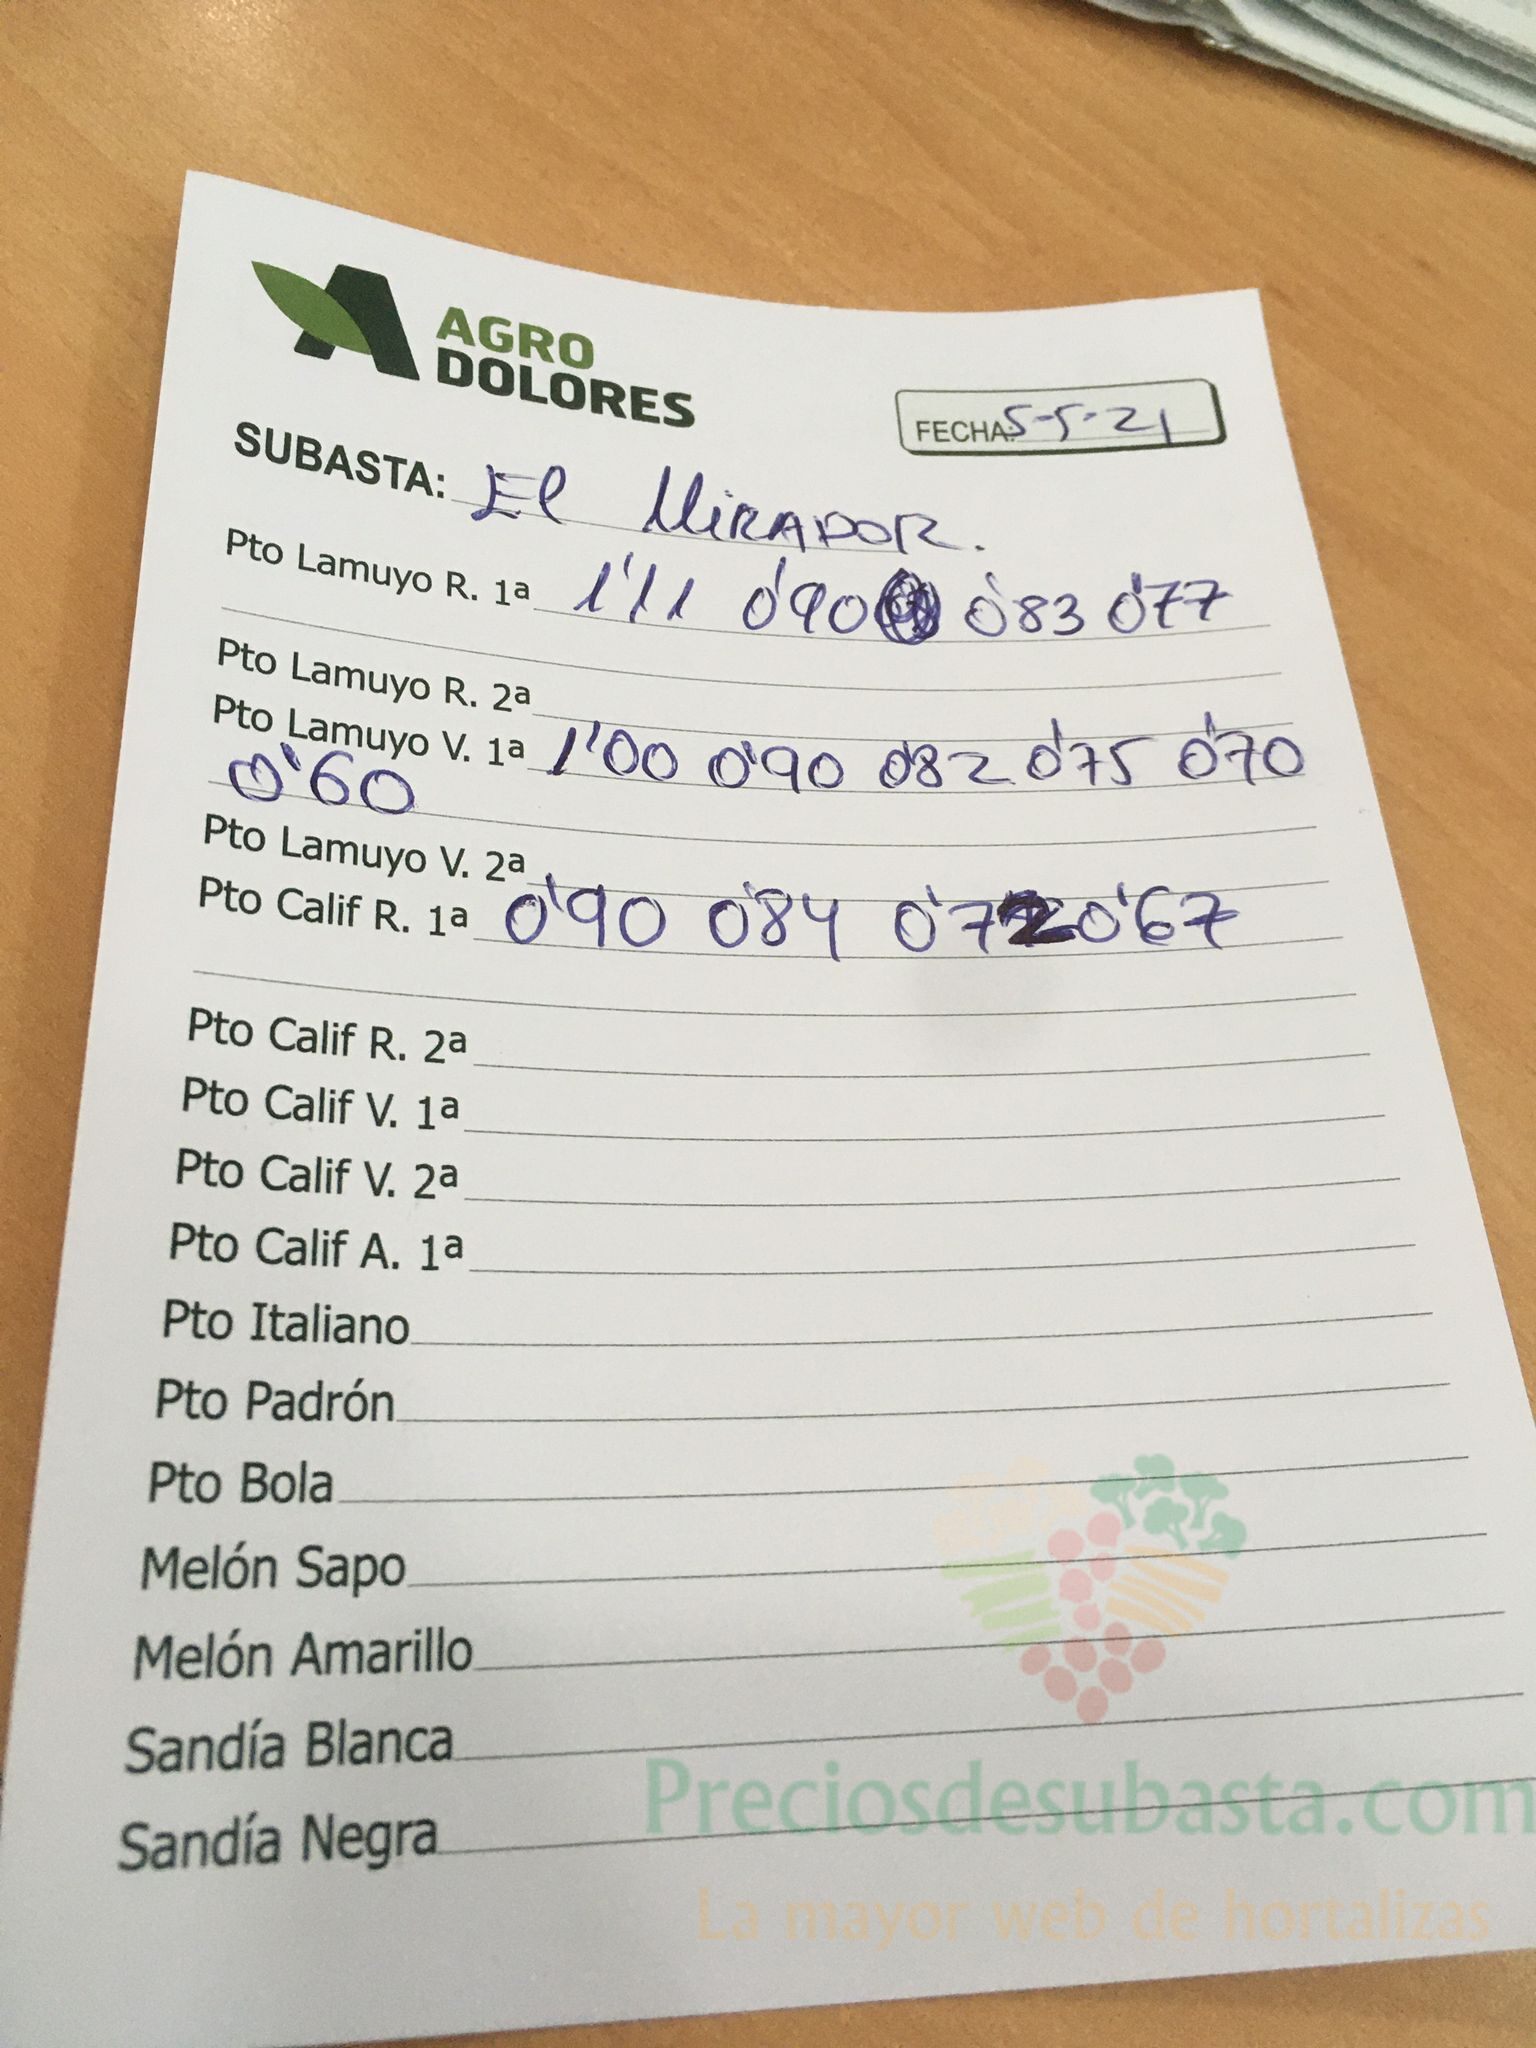 AGRO
DOLORES
FECHA: 5-5-21
SUBASTA: El MiRADOR.
Pto Lamuyo R. 1ª 1'11 0'90 0'83 0'77
Pto Lamuyo R. 2ª
Pto Lamuyo V. 1ª 1'00 0'90 0'82 0'75 0'70
0'60
Pto Lamuyo V. 2ª
Pto Calif R. 1ª 0'90 0'84 0'72 0'67
Pto Calif R. 2ª
Pto Calif V. 1ª
Pto Calif V. 2ª
Pto Calif A. 1ª
Pto Italiano
Pto Padrón
Pto Bola
Melón Sapo
Melón Amarillo
Sandía Blanca
Sandía Negra
Preciosdesubasta.com
La mayor web de hortalizas